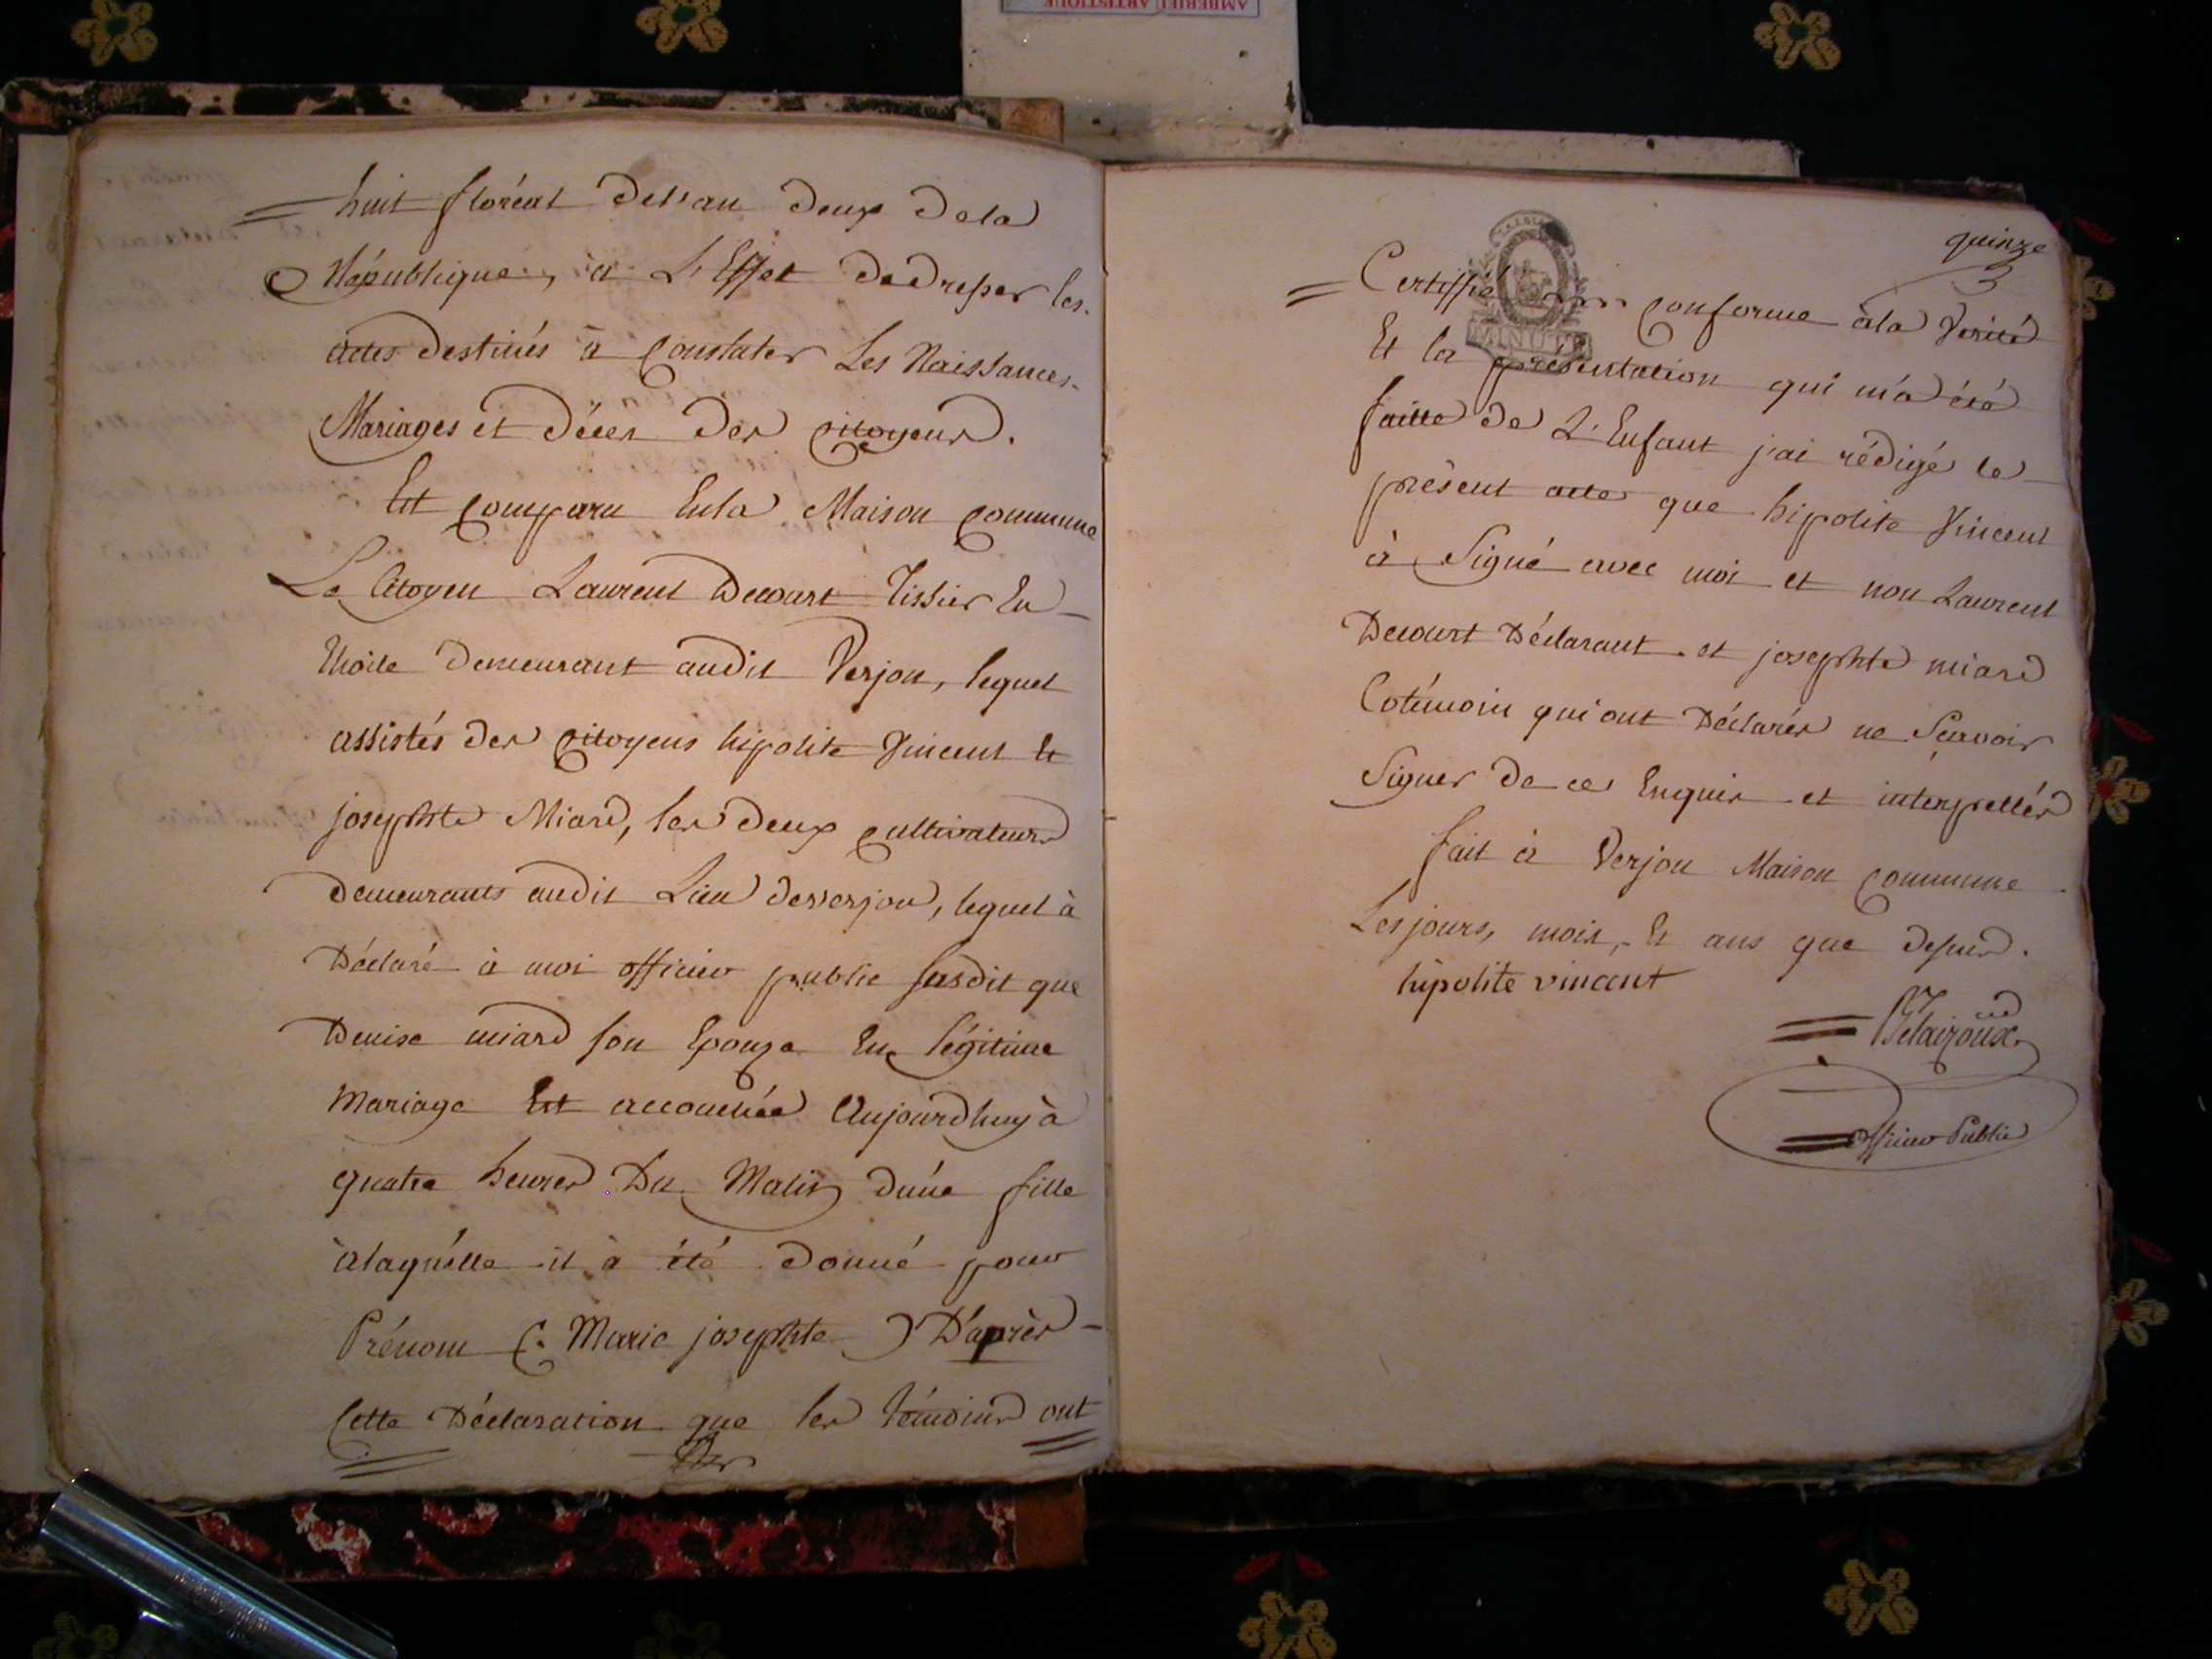 AMBERIEU ARTISTIQUE
huit floréal del'an deux dela
République, a L'Effet dedresser les
actes destinés à Constater Les Naissances
Mariages et Décès des Citoyens.
Est Comparu Enla Maison Commune
Le Citoyen Laurent Decourt Tissier En
thoile Demeurant audit Verjon, lequel
assistés des Citoyens hipolite Vincent Et
josephte Miard, les deux Cultivateurs
Demeurants audit Lieu deverjon, lequel à
Déclaré à moi officier public susdit que
Denise miard son Epouze En légitime
mariage Est accouchée Aujourdhuy à
quatre heures Du Matin d'une fille
àlaquélle il à été Donné pour
Prénom (: Marie josephte ) D'après
Cette Déclaration que les témoins ont
quinze
Certiffié conforme àla Verité
Et la présentation qui m'a été
faitte de L'Enfant j'ai rédigé le
présent acte que hipolite Vincent
à Signé avec moi et non Laurent
Decourt Déclarant et josephte miard
Cotémoin qui ont Déclarés ne Scavoir
Signer de ce Enquis et intérpellés
fait à Verjon Maison Commune
Les jours, mois, Et ans que dessus.
hipolite vincent
officier Public
MINUTE